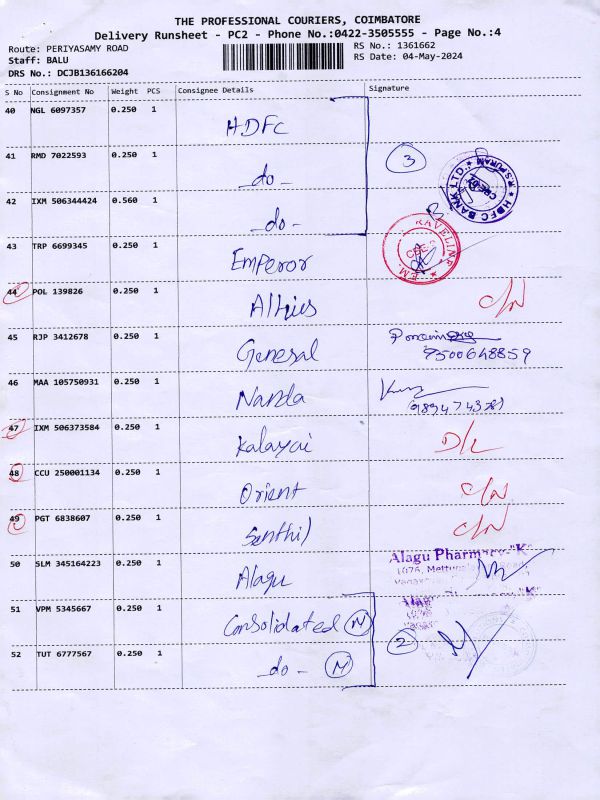 THE PROFESSIONAL COURIERS, COIMBATORE
Delivery Runsheet - PC2 - Phone No.:0422-3505555 - Page No.:4
Route: PERIYASAMY ROAD
RS No.: 1361662
Staff: BALU
RS Date: 04-May-2024
DRS No.: DCJB136166204
S No Consignment No Weight PCS Consignee Details Signature
40 NGL 6097357 0.250 1 HDFC
41 RMD 7022593 0.250 1 -do- 3
HDFC BANK LTD. * R.S.PURAM *
42 IXM 506344424 0.560 1 -do-
43 TRP 6699345 0.250 1 Emperor
CBE
44 POL 139826 0.250 1 C/N
45 RJP 3412678 0.250 1 General
9500648859
46 MAA 105750931 0.250 1 Nanda
47 IXM 506373584 0.250 1 D/L
48 CCU 250001134 0.250 1 Orient C/N
49 PGT 6838607 0.250 1 Senthil C/N
50 SLM 345164223 0.250 1 Alagu
Alagu Pharmacy "K"
51 VPM 5345667 0.250 1 Consolidated N
2
52 TUT 6777567 0.250 1 -do- N